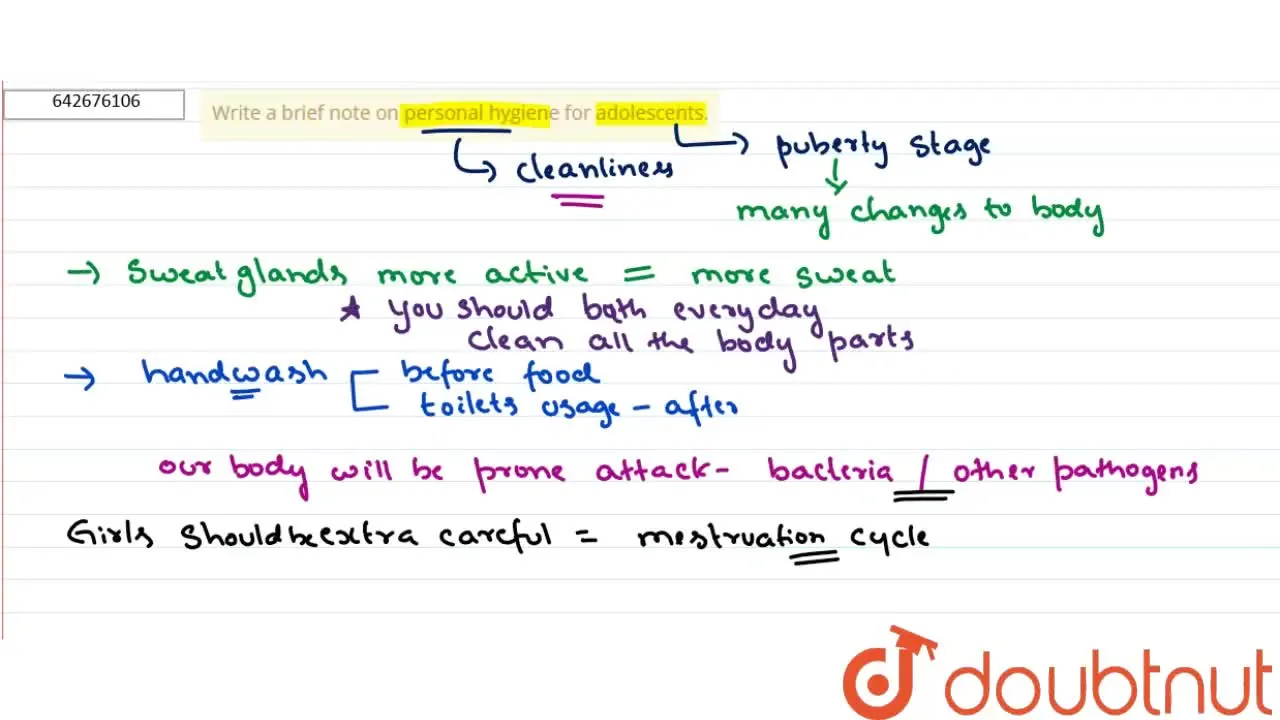 642676106
Write a brief note on personal hygiene for adolescents.
puberty stage
cleanliness
many changes to body
→ Sweat glands more active = more sweat
* you should bath everyday
clean all the body parts
→ handwash before food
toilets usage - after
our body will be prone attack - bacteria / other pathogens
Girls should be extra careful = mestruation cycle
doubtnut